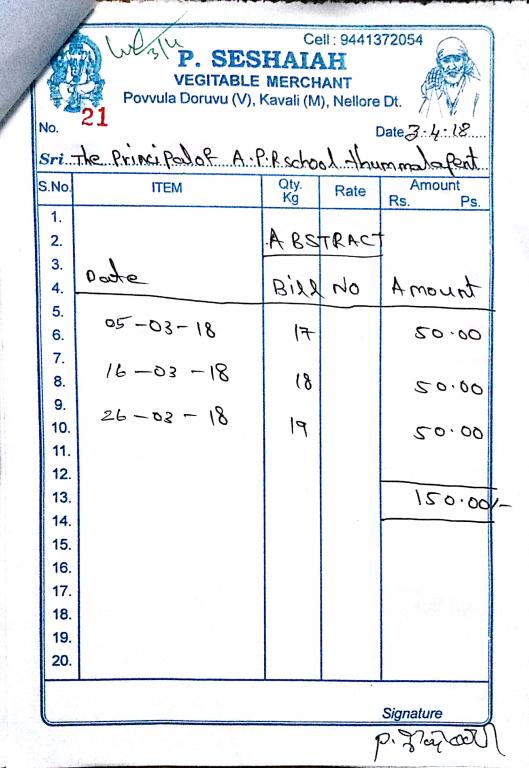 Cell : 9441372054
P. SESHAIAH
VEGITABLE MERCHANT
Povvula Doruvu (V), Kavali (M), Nellore Dt.
No. 21
Date 3-4-18
Sri. The Principal of A.P.R school Thummalapent
S.No. ITEM Qty. Kg Rate Amount Rs. Ps.
1.
2. ABSTRACT
3.
4. Date Bill No Amount
5.
6. 05-03-18 17 50.00
7.
8. 16-03-18 18 50.00
9.
10. 26-03-18 19 50.00
11.
12.
13. 150.00/-
14.
15.
16.
17.
18.
19.
20.
Signature